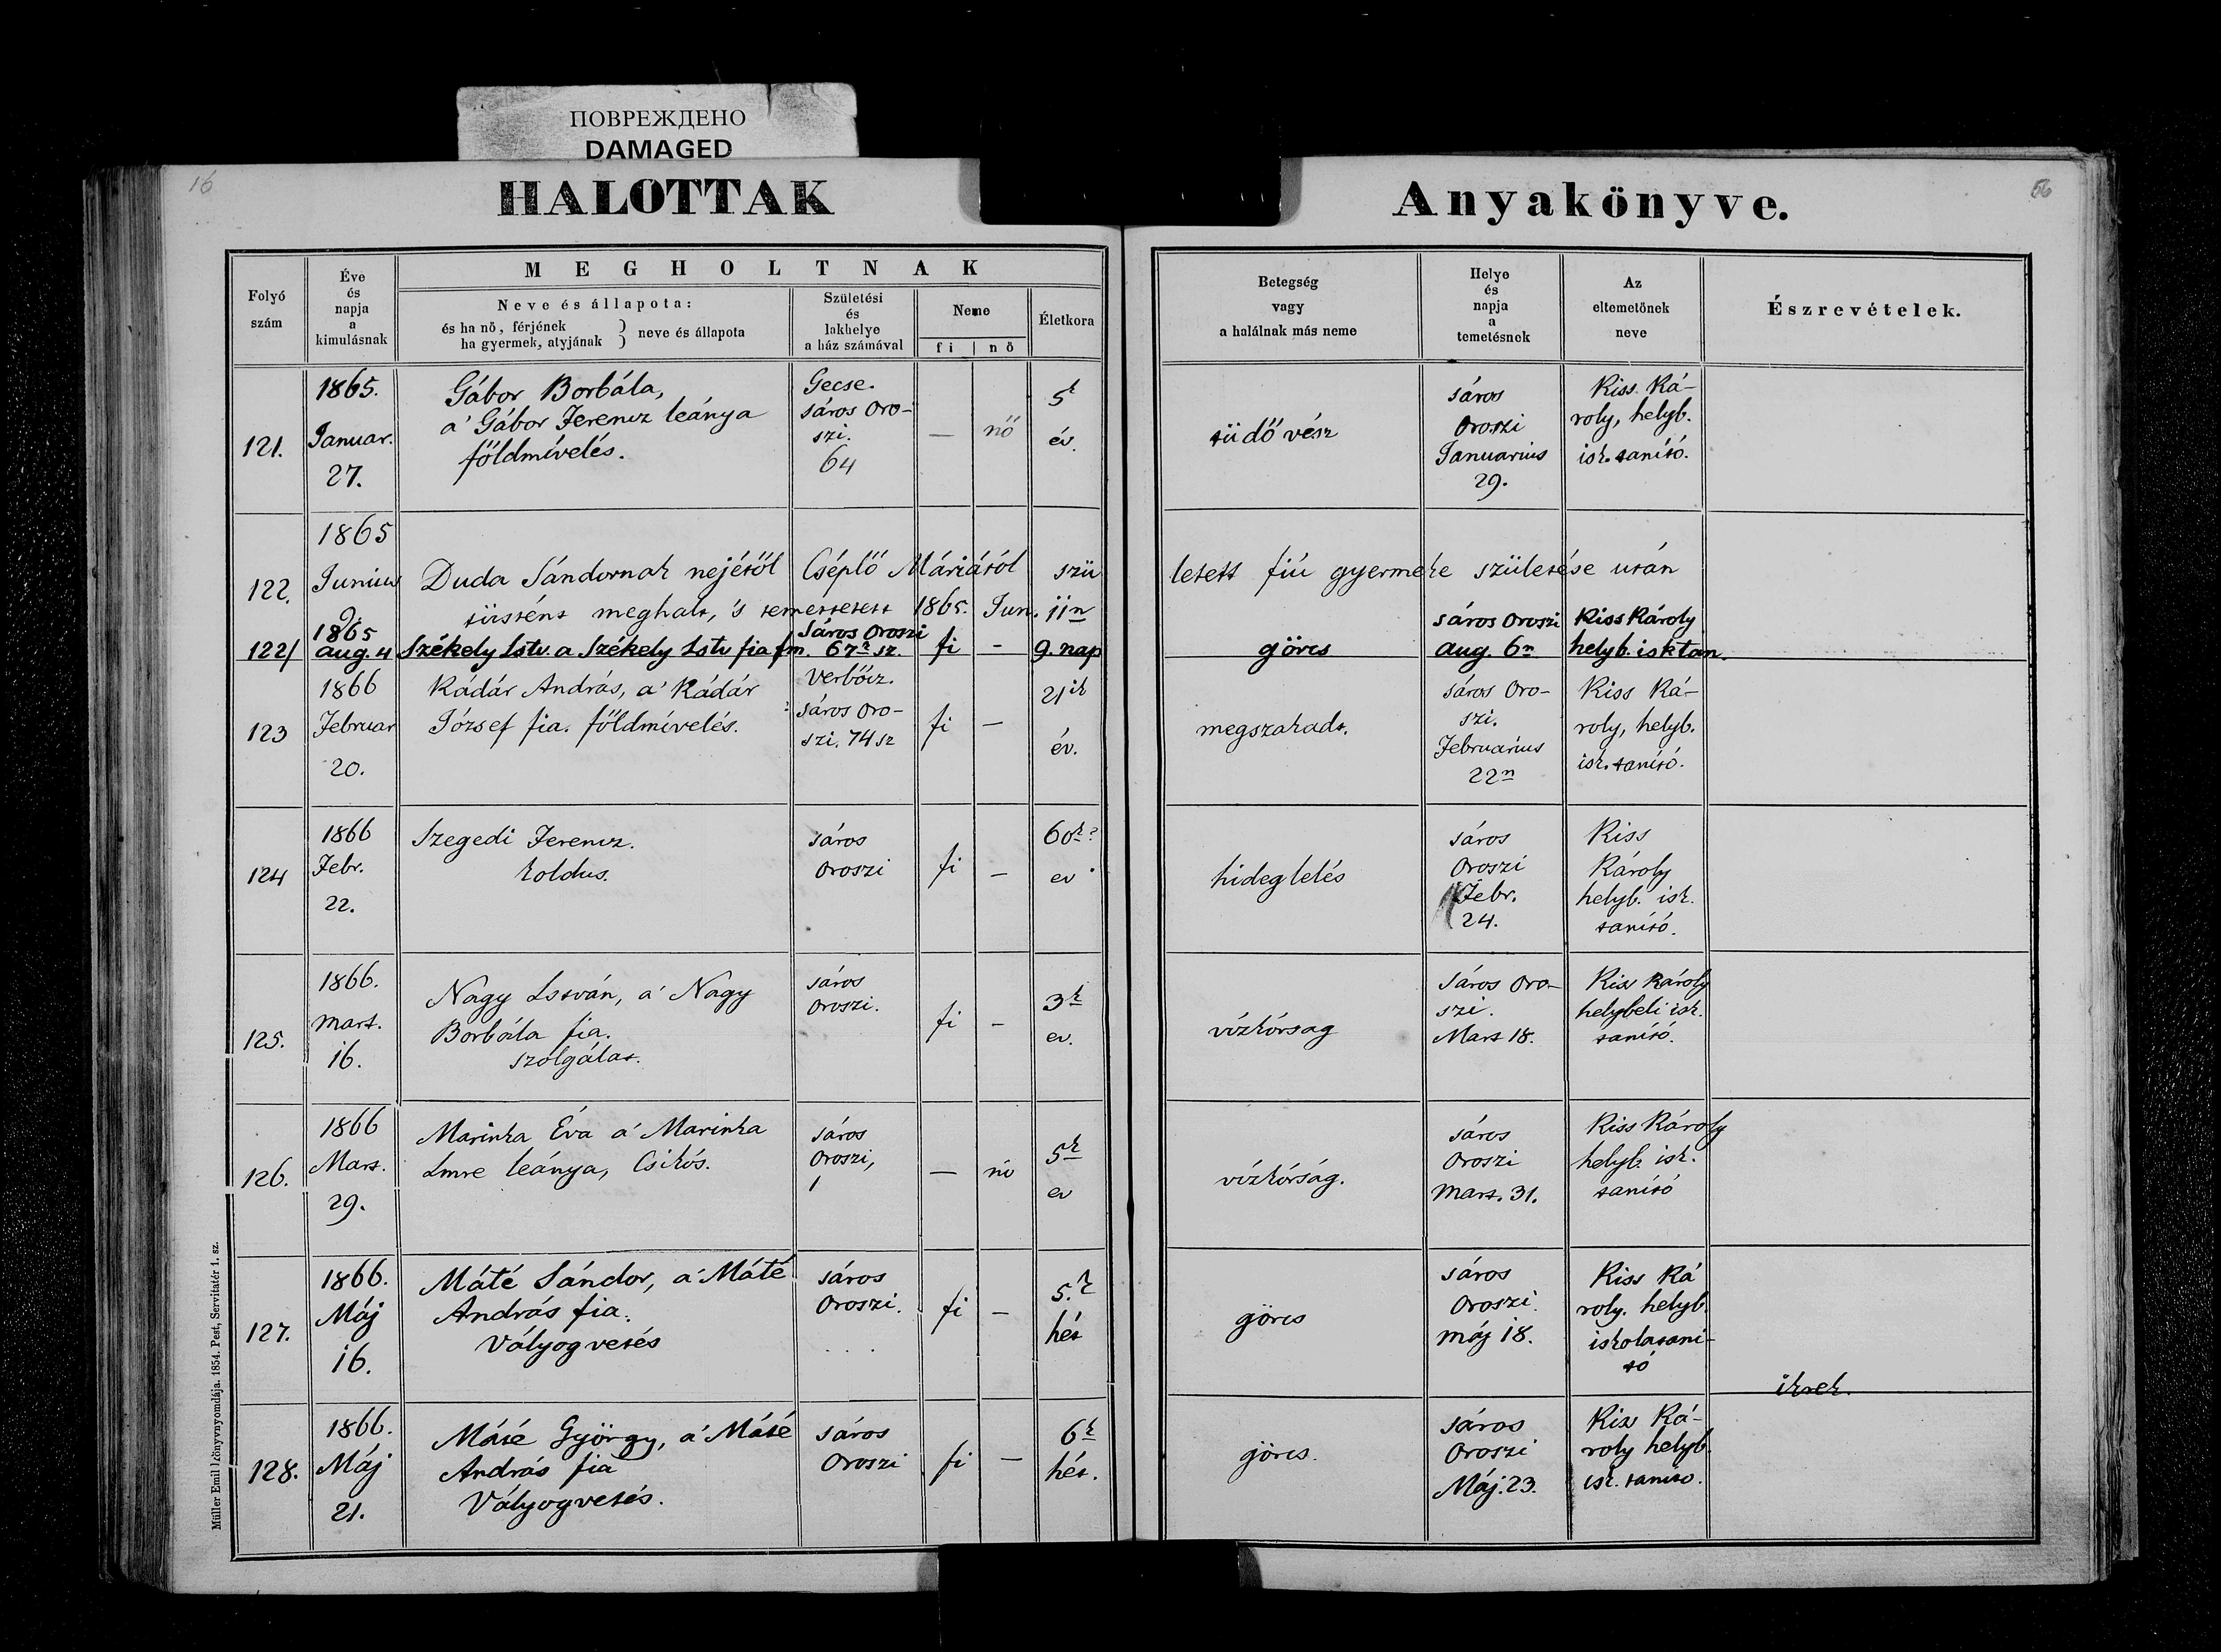 ПОВРЕЖДЕНО
DAMAGED
16
HALOTTAK
Anyakönyve.
56
Folyó szám
Éve és napja a kimulásnak
MEGHOLTNAK
Neve és állapota:
és ha nő, férjének
ha gyermek, atyjának } neve és állapota
Születési és lakhelye a ház számával
Neme
fi | nő
Életkora
Betegség vagy a halálnak más neme
Helye és napja a temetésnek
Az eltemetőnek neve
Észrevételek.
121.
1865.
Januar.
27.
Gábor Borbála,
a' Gábor Ferencz leánya
földmívelés.
Gecse.
Sáros Oro-
szi.
64
—
nő
5k
év.
tüdővész
Sáros
Oroszi
Januarius
29.
Kiss Ká-
roly, helyb.
isk. tanító.
1865
122.
Junius
9.
Duda Sándornak nejétől Cséplő Máriától szü
letett fiú gyermeke születése után
tüstént meghalt, 's temettetett 1865. Jun. 11n
122/
1865
aug. 4
Székely Istv. a Székely Istv fia fm.
Sáros Oroszi
67k sz.
fi
-
9. nap
görcs
Sáros Oroszi
aug. 6n
Kiss Károly
helyb. isk tan.
123
1866
Februar
20.
Kádár András, a' Kádár
József fia. földmívelés.
Verbőcz.
Sáros Oro-
szi. 74 sz
fi
—
21ik
év.
megszakadt.
Sáros Oro-
szi.
Februárius
22n
Kiss Ká-
roly, helyb.
isk. tanító.
124
1866
Febr.
22.
Szegedi Ferencz.
koldus.
Sáros
Oroszi
fi
—
60k?
ev
hideglelés
Sáros
Oroszi
Febr.
24.
Kiss
Károly
helyb. isk.
tanító.
125.
1866.
Mart.
16.
Nagy István, a' Nagy
Borbála fia.
szolgálat.
Sáros
Oroszi.
fi
-
3k
ev.
vízkórsag
Sáros Oro-
szi.
Mart 18.
Kiss Károly
helybeli isk.
tanító.
126.
1866
Mart.
29.
Marinka Éva a' Marinka
Imre leánya, Csikós.
Sáros
Oroszi,
1
—
nő
5k
ev
vízkórság.
Sáros
Oroszi
Mart. 31.
Kiss Károly
helyb. isk.
tanító
127.
1866.
Máj
16.
Máté Sándor, a' Máté
András fia.
Vályogvetés
Sáros
Oroszi.
fi
-
5.k
hét
görcs
Sáros
Oroszi.
máj 18.
Kiss Ká
roly. helyb.
iskolatani-
tó
ikrek.
128.
1866.
Máj
21.
Máté György, a' Máté
András fia
Vályogvetés.
Sáros
Oroszi
fi
—
6k
hét.
görcs.
Sáros
Oroszi
Máj. 23.
Kiss Ká-
roly helyb.
isk. tanito.
Müller Emil könyvnyomdája. 1854. Pest, Servitatér 1. sz.